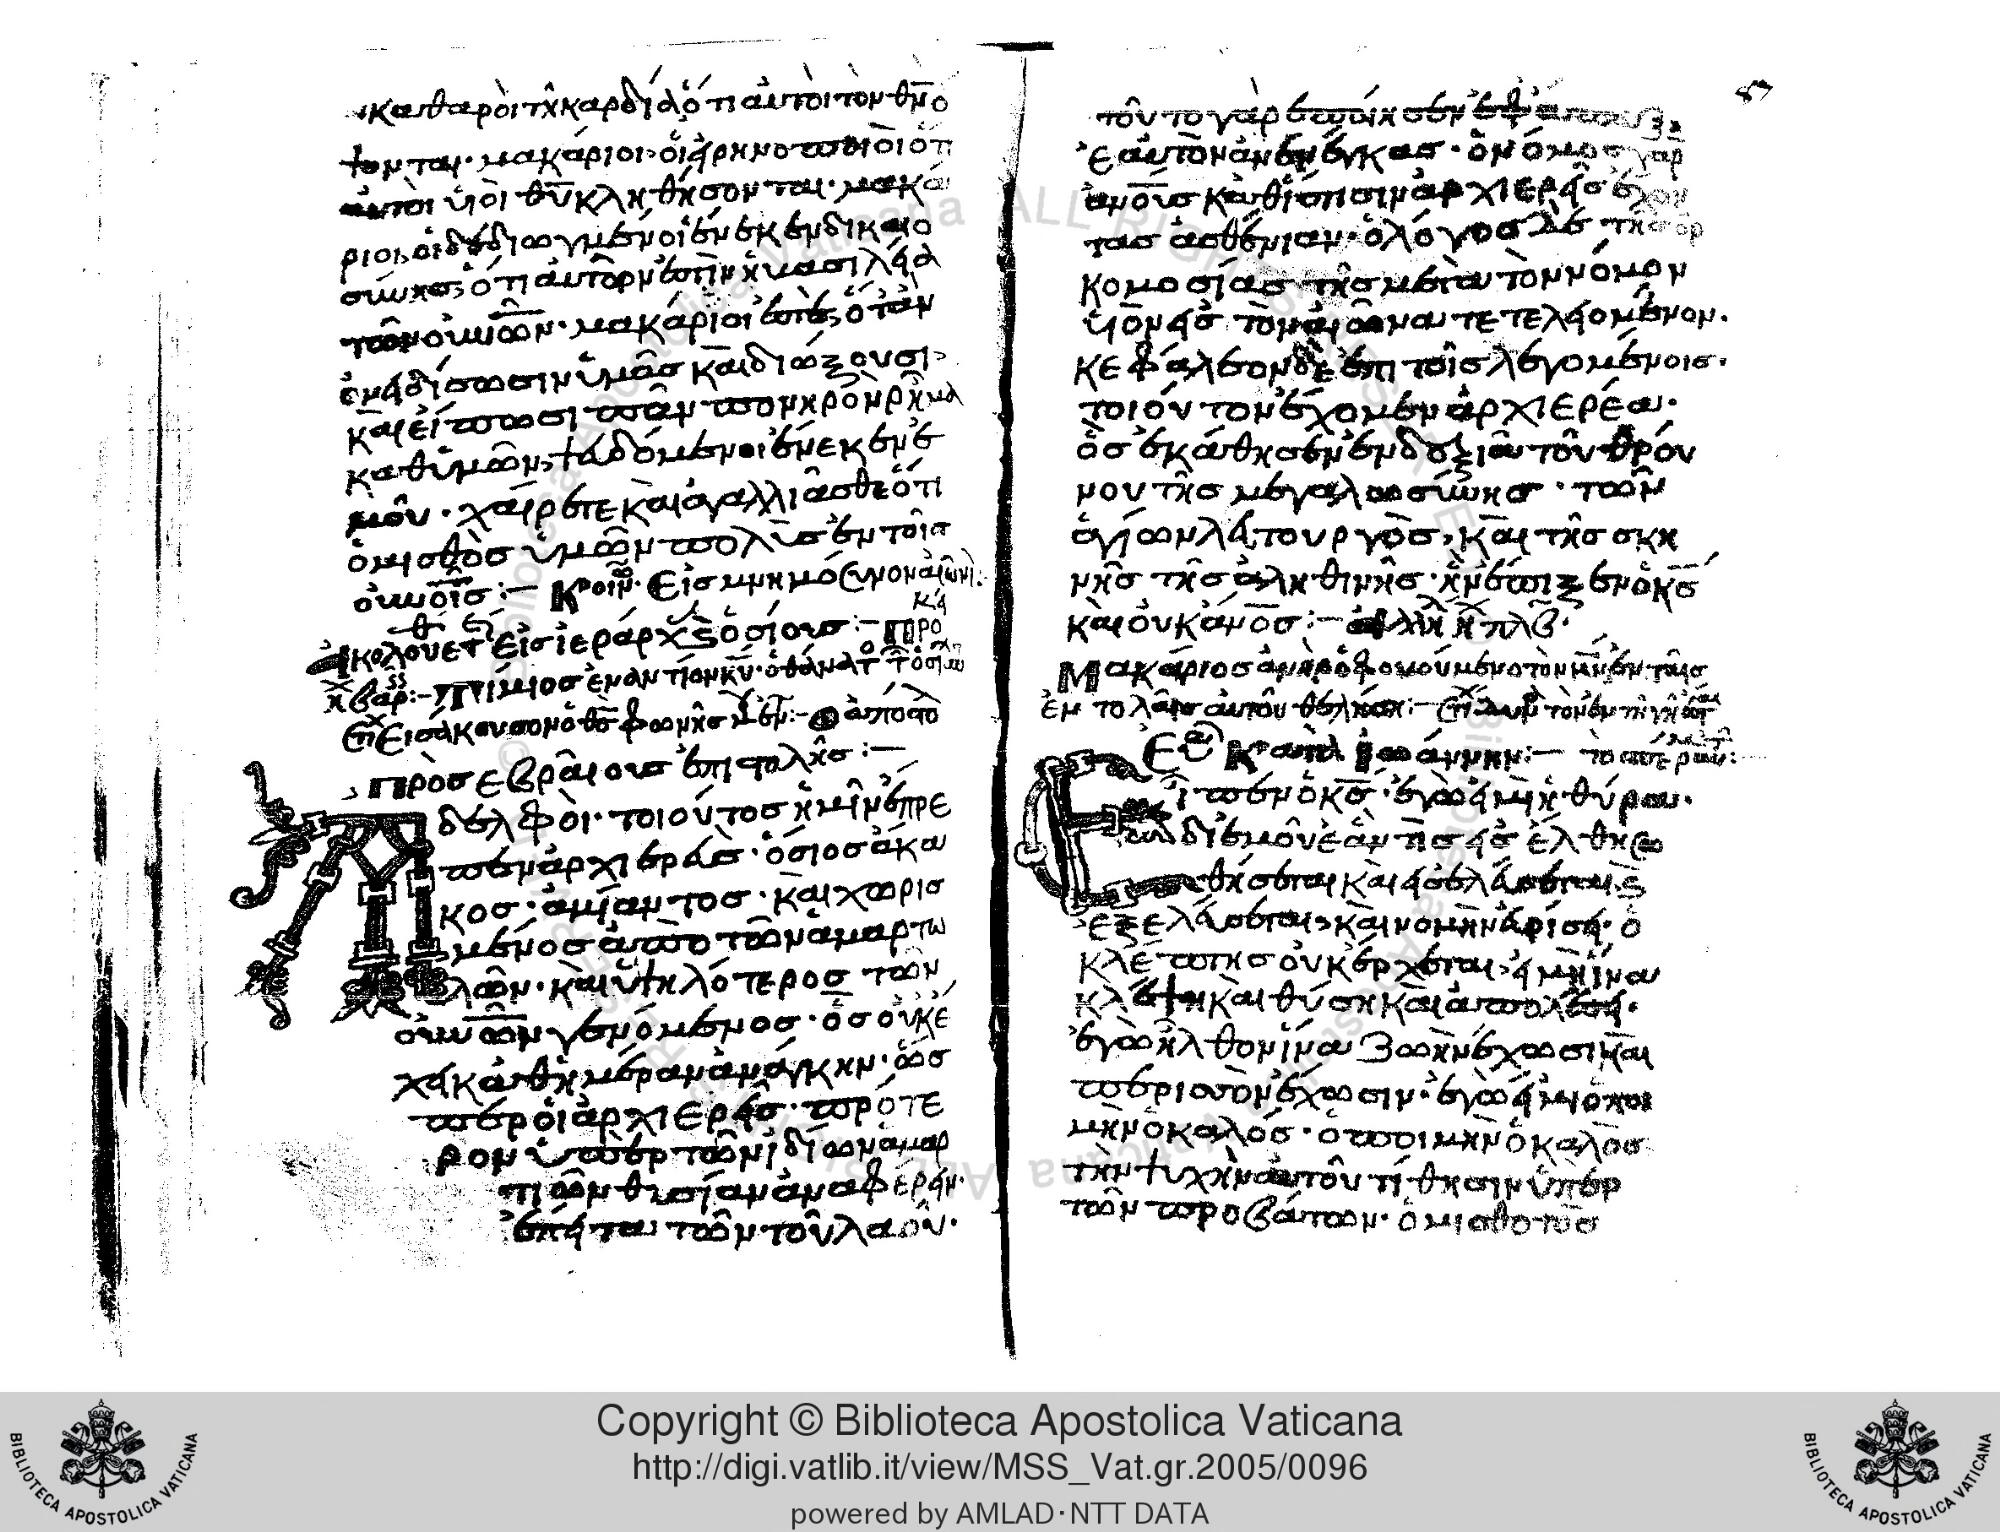 καθαροὶ τῆ καρδία ὅτι αὐτοὶ τὸν θν ὄ
ψονται· μακάριοι οἱ εἰρηνοποιοὶ ὅτι
αὐτοὶ υἱοὶ θυ κληθήσονται· μακά
ριοι οἱ δεδιωγμένοι ἕνεκεν δικαιο
σύνης, ὅτι αὐτῶν ἐστὶν ἡ βασιλεία
τῶν οὐνῶν· μακάριοί ἐστε, ὅταν
ὀνειδίσωσιν ὑμᾶς καὶ διώξουσι,
καὶ εἴπωσι πᾶν πονηρὸν ῥῆμα
καθ' ὑμῶν, ψευδόμενοι ἕνεκεν ἐ
μοῦ· χαίρετε καὶ ἀγαλλιᾶσθε ὅτι
ὁ μισθὸς ὑμῶν πολὺς ἐν τοῖς
οὐνοῖς :— Κοιν. Εἰς μνημόσυνον αἰώνι:
εἰς ἱεράρχ ὁσίους :— Προκεί
Τίμιος ἐναντίον κυ ὁ θάνατ τοῦ ὁσίου
Εἰσάκουσον ὁ θς φωνῆς :— ὁ ἀπόστο
πρὸς εβραίους ἐπιστολῆς :—
Ἀδελφοὶ· τοιοῦτος ἡμῖν ἔπρε
πεν ἀρχιερεύς· ὅσιος ἄκα
κος· ἀμίαντος· καὶ χωρισ
μένος ἀπὸ τῶν ἁμαρτω
λῶν· καὶ ὑψηλότερος τῶν
οὐνῶν γενόμενος· ὃς οὐκ ἔ
χει καθημέραν ἀνάγκην· ὥσ
περ οἱ ἀρχιερεῖς· πρότε
ρον ὑπὲρ τῶν ἰδίων ἁμαρ
τιῶν θυσίαν ἀναφέρειν·
ἔπειτα τῶν τοῦ λαοῦ·
τοῦτο γὰρ ἐποίησεν ἐφάπαξ
ἑαυτὸν ἀνενέγκας· ὁ νόμος γὰρ
ανους καθίστησιν ἀρχιερεῖς ἔχον
τας ἀσθένειαν· ὁ λόγος δὲ τῆς ὁρ
κομοσίας τῆς μετὰ τὸν νόμον
υἱὸν εἰς τὸν αἰῶνα τετελειομένον·
κεφάλεον δὲ ἐπὶ τοῖς λεγομένοις·
τοιοῦτον ἔχομεν ἀρχιερέα·
ὃς ἐκάθησεν ἐν δεξιᾶ τοῦ θρό
νου τῆς μεγαλωσύνης· τῶν
ἁγίων λειτουργὸς, καὶ τῆς σκη
νῆς τῆς ἀληθινῆς· ἣν ἔπιξεν ὁ κς
καὶ οὐκ ανος :—
Μακάριος ἀνὴρ ὁ φοβούμενο τὸν κν ἐν ταῖς
ἐν τολαῖς αὐτοῦ θελήσει :—
Ευα κατὰ Ἰωάννην :—
Εἶπεν ὁ κς· ἐγώ εἰμι ἡ θύρα·
δι' ἐμοῦ ἐάν τις εἰς ἐλθη σω
θήσεται καὶ εἰσελεύσεται, καὶ
ἐξελεύσεται, καὶ νομὴν εὑρίσει· ὁ
κλέπτης οὐκ ἔρχεται, εἰ μὴ ἵνα
κλέψη καὶ θύση καὶ ἀπολέσει·
ἐγὼ ἦλθον ἵνα ζωὴν ἔχωσι καὶ
περισσὸν ἔχωσιν· ἐγώ εἰμι ὁ ποι
μὴν ὁ καλός· ὁ ποιμὴν ὁ καλὸς
τὴν ψυχὴν αὐτοῦ τίθησιν ὑπὲρ
τῶν προβάτων· ὁ μισθοτὸς
Copyright © Biblioteca Apostolica Vaticana
http://digi.vatlib.it/view/MSS_Vat.gr.2005/0096
powered by AMLAD·NTT DATA
BIBLIOTECA APOSTOLICA VATICANA
BIBLIOTECA APOSTOLICA VATICANA